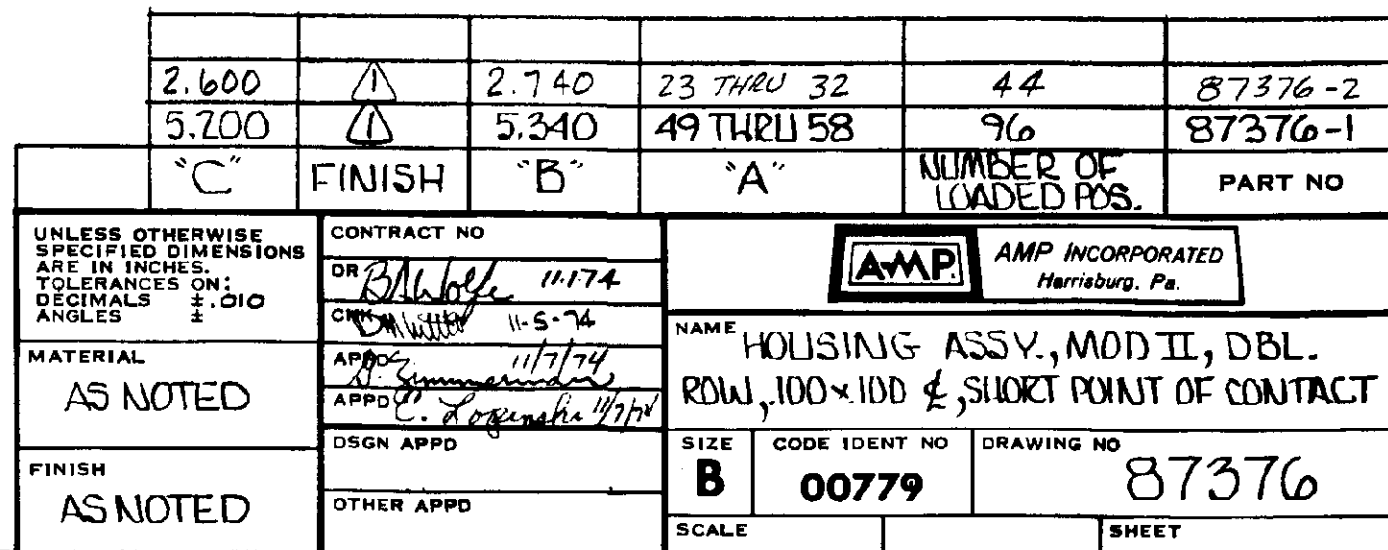 2.600 ⚠1 2.740 23 THRU 32 44 87376-2
5.200 ⚠1 5.340 49 THRU 58 96 87376-1
"C" FINISH "B" "A" NUMBER OF LOADED POS. PART NO
UNLESS OTHERWISE
SPECIFIED DIMENSIONS
ARE IN INCHES.
TOLERANCES ON:
DECIMALS ±.010
ANGLES ±
MATERIAL
AS NOTED
FINISH
AS NOTED
CONTRACT NO
DR 11-1-74
CHK 11-5-74
APPD D. Zimmerman 11/7/74
APPD 11/7/74
DSGN APPD
OTHER APPD
AMP
AMP INCORPORATED
Harrisburg, Pa.
NAME HOUSING ASSY., MOD II, DBL.
ROW, .100 x .100 ℄, SHORT POINT OF CONTACT
SIZE CODE IDENT NO DRAWING NO
B 00779 87376
SCALE SHEET